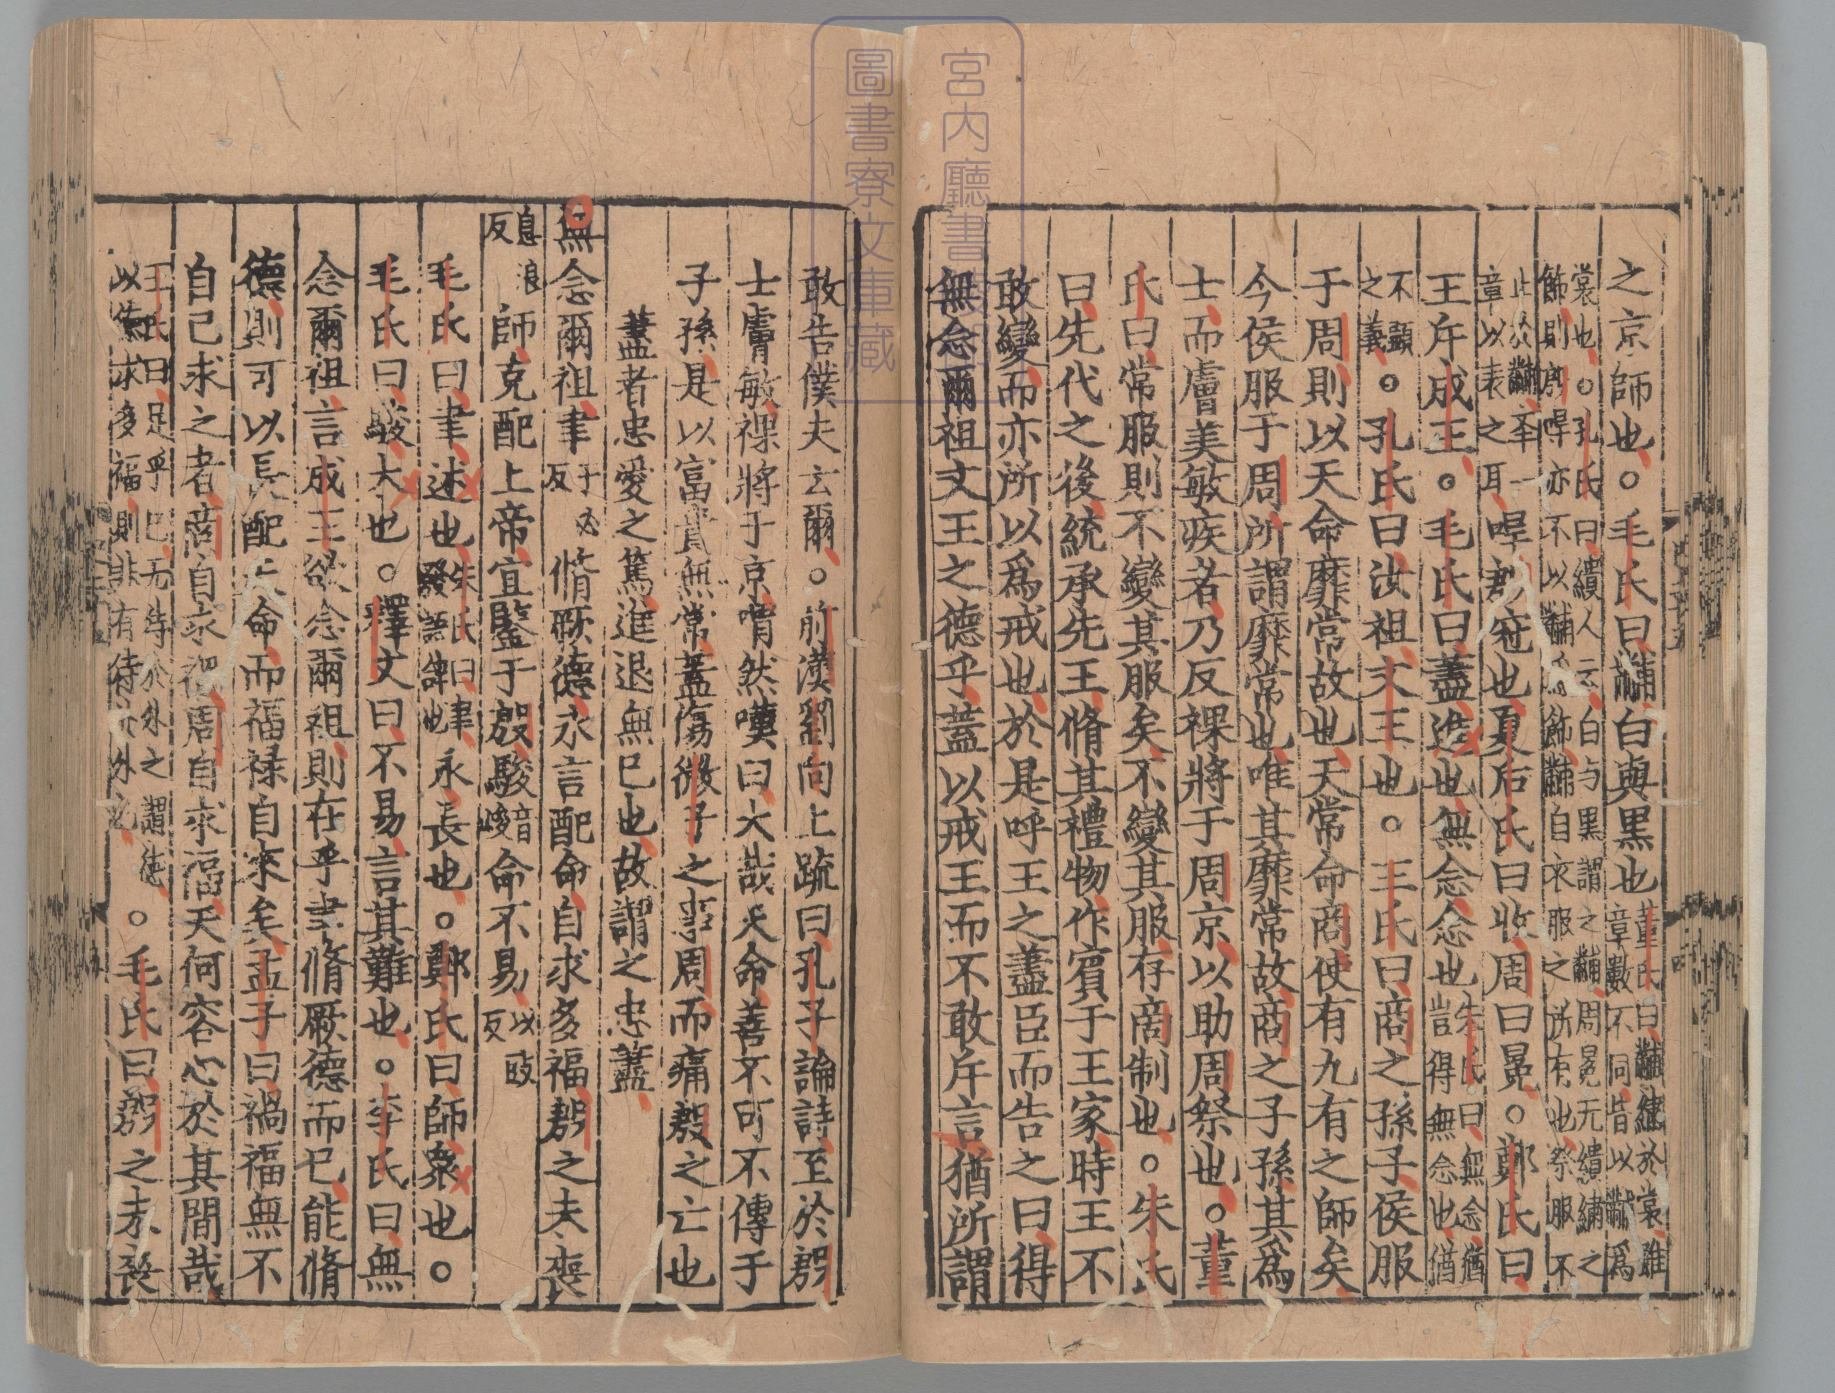 之京師也○毛氏曰黼白與黒也董氏曰黼繡於裳雖
章數不同皆以黼爲
裳也○孔氏曰繢人云白与黒謂之黼周冕无繢繡之
飾則冔亦不以黼爲飾黼自衣服之所有也祭服不
止於黼举一
章以表之耳冔殷冠也夏后氏曰收周曰冕○鄭氏曰
王斥成王○毛氏曰藎進也無念念也朱氏曰無念猶
豈得無念也猶
不顯
之義○孔氏曰汝祖文王也○王氏曰商之孫子侯服
于周則以天命靡常故也天常命商使有九有之師矣
今侯服于周所謂靡常也唯其靡常故商之子孫其爲
士而膚美敏疾者乃反祼將于周京以助周祭也○董
氏曰常服則不變其服矣不變其服存商制也○朱氏
曰先代之後統承先王脩其禮物作賓于王家時王不
敢變而亦所以爲戒也於是呼王之藎臣而告之曰得
無念爾祖文王之德乎蓋以戒王而不敢斥言猶所謂
敢告僕夫云爾○前漢劉向上疏曰孔子論詩至於殷
士膚敏祼將于京喟然嘆曰大哉天命善不可不傳于
子孫是以富貴無常蓋傷微子之事周而痛殷之亡也
藎者忠愛之篤進退無已也故謂之忠藎
無念爾祖聿于必
反脩厥德永言配命自求多福殷之未喪
息浪
反師克配上帝宜鑒于殷駿音
峻命不易以豉
反
毛氏曰聿述也朱氏曰聿
發語辭也永長也○鄭氏曰師衆也○
毛氏曰駿大也○釋文曰不易言其難也○李氏曰無
念爾祖言成王欲念爾祖則在乎聿脩厥德而已能脩
德則可以長配天命而福禄自來矣孟子曰禍福無不
自己求之者商自求禍周自求福天何容心於其間哉
王氏曰足乎已无待於外之謂德
以德求多福則非有待於外也○毛氏曰殷之未喪